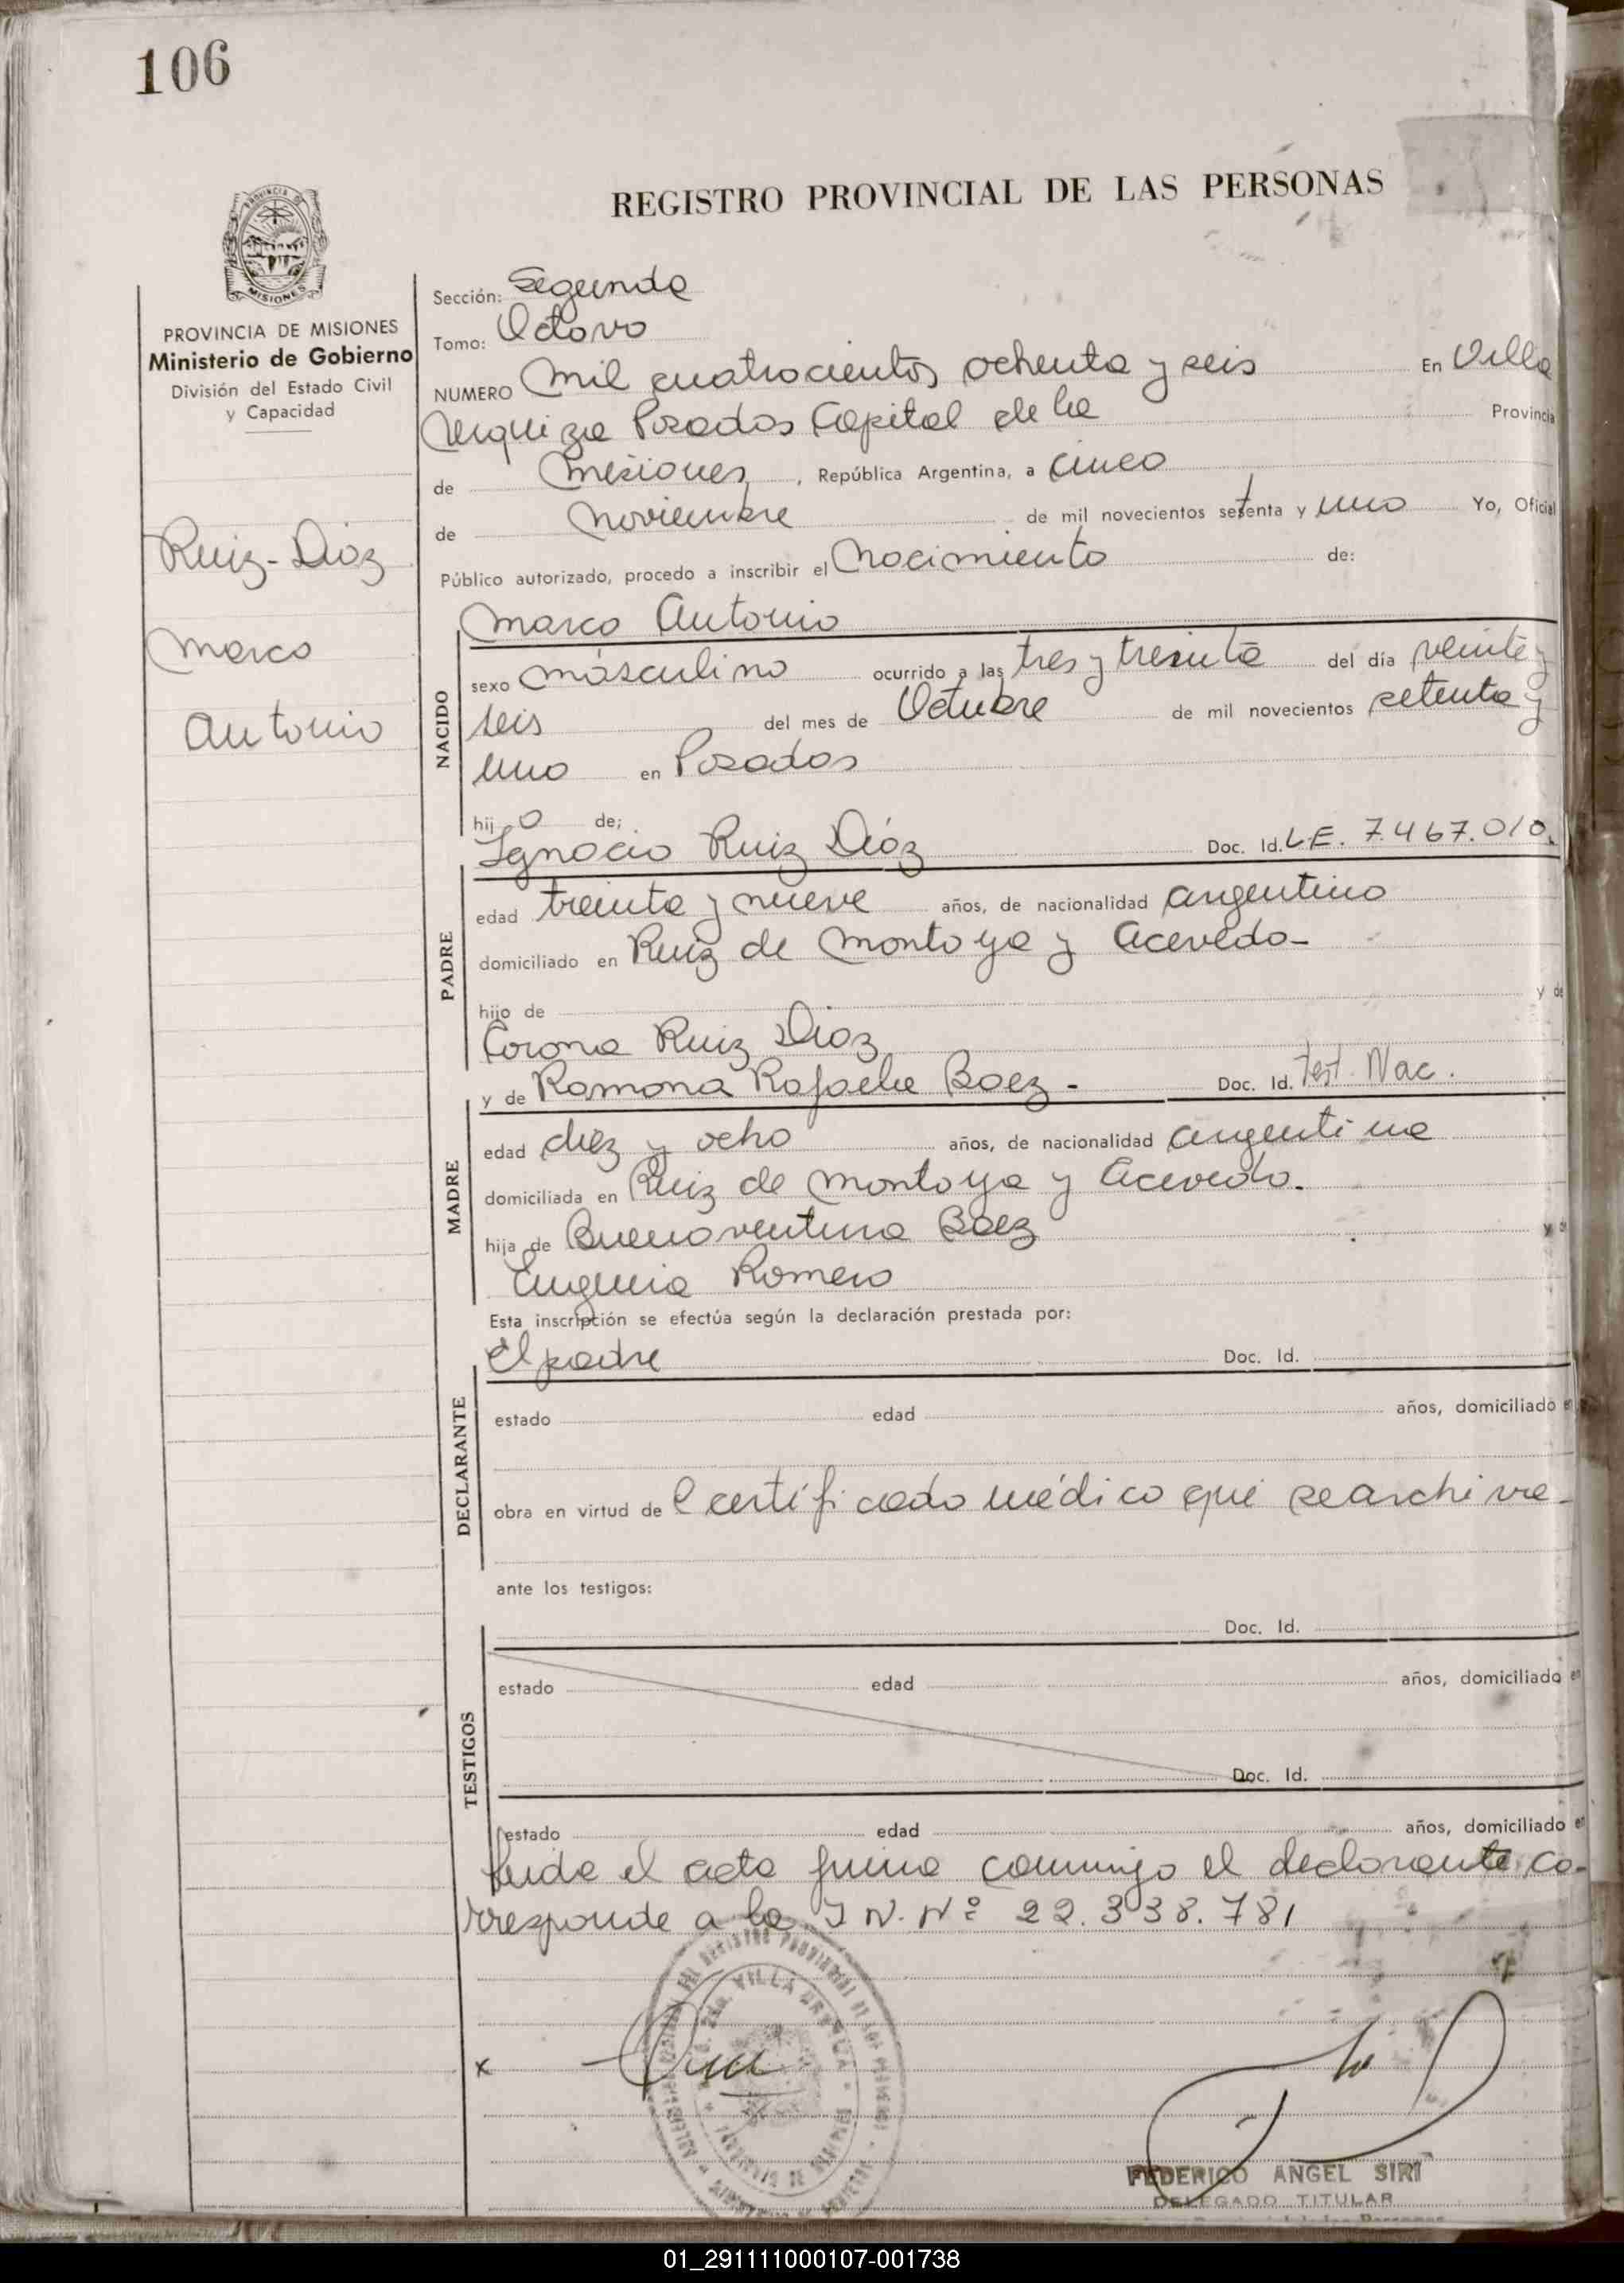 106
REGISTRO PROVINCIAL DE LAS PERSONAS
PROVINCIA DE
MISIONES
PROVINCIA DE MISIONES
Ministerio de Gobierno
División del Estado Civil
y Capacidad
Ruiz-Díaz
Marco
Antonio
Sección: Segunda
Tomo: Octavo
NUMERO Mil cuatrocientos ochenta y seis En Villa
Urquiza Posadas Capital de la Provincia
de Misiones, República Argentina, a cinco
de Noviembre de mil novecientos setenta y uno Yo, Oficial
Público autorizado, procedo a inscribir el Nacimiento de:
Marco Antonio
NACIDO
sexo masculino ocurrido a las tres y treinta del día veinte y
seis del mes de Octubre de mil novecientos setenta y
uno en Posadas
hijo de;
Ignacio Ruiz Díaz Doc. Id. L.E. 7.467.010.
PADRE
edad treinta y nueve años, de nacionalidad argentino
domiciliado en Ruiz de Montoya y Acevedo-
hijo de y de
Corona Ruiz Diaz
y de Ramona Rafaela Baez - Doc. Id. Test. Nac.
MADRE
edad diez y ocho años, de nacionalidad argentina
domiciliada en Ruiz de Montoya y Acevedo.
hija de Buenaventura Baez y de
Eugenia Romero
Esta inscripción se efectúa según la declaración prestada por:
El padre Doc. Id.
DECLARANTE
estado edad años, domiciliado en
obra en virtud del certificado médico que se archiva-
ante los testigos:
Doc. Id.
TESTIGOS
estado edad años, domiciliado en
Doc. Id.
estado edad años, domiciliado en
leida el acta firma conmigo el declarante, co-
rresponde a la I N. Nº 22.338.781
x
VILLA URQUIZA
FEDERICO ANGEL SIRI
DELEGADO TITULAR
01_291111000107-001738